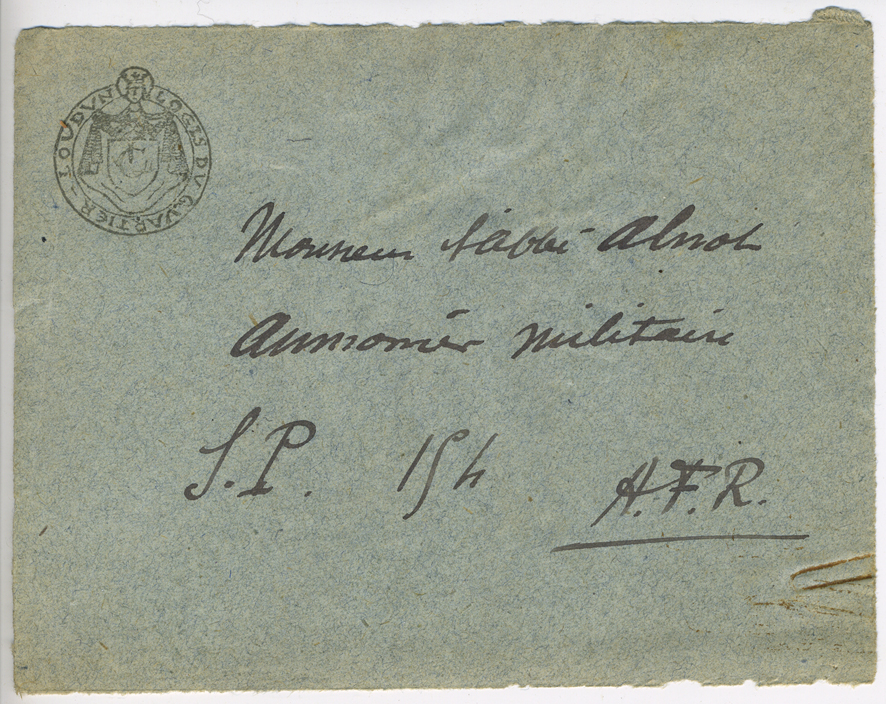 LOUDVN LOGIS DV QVARTIER
Monsieur l'abbé Alnot
Aumonier militaire
S.P. 154 A.F.R.